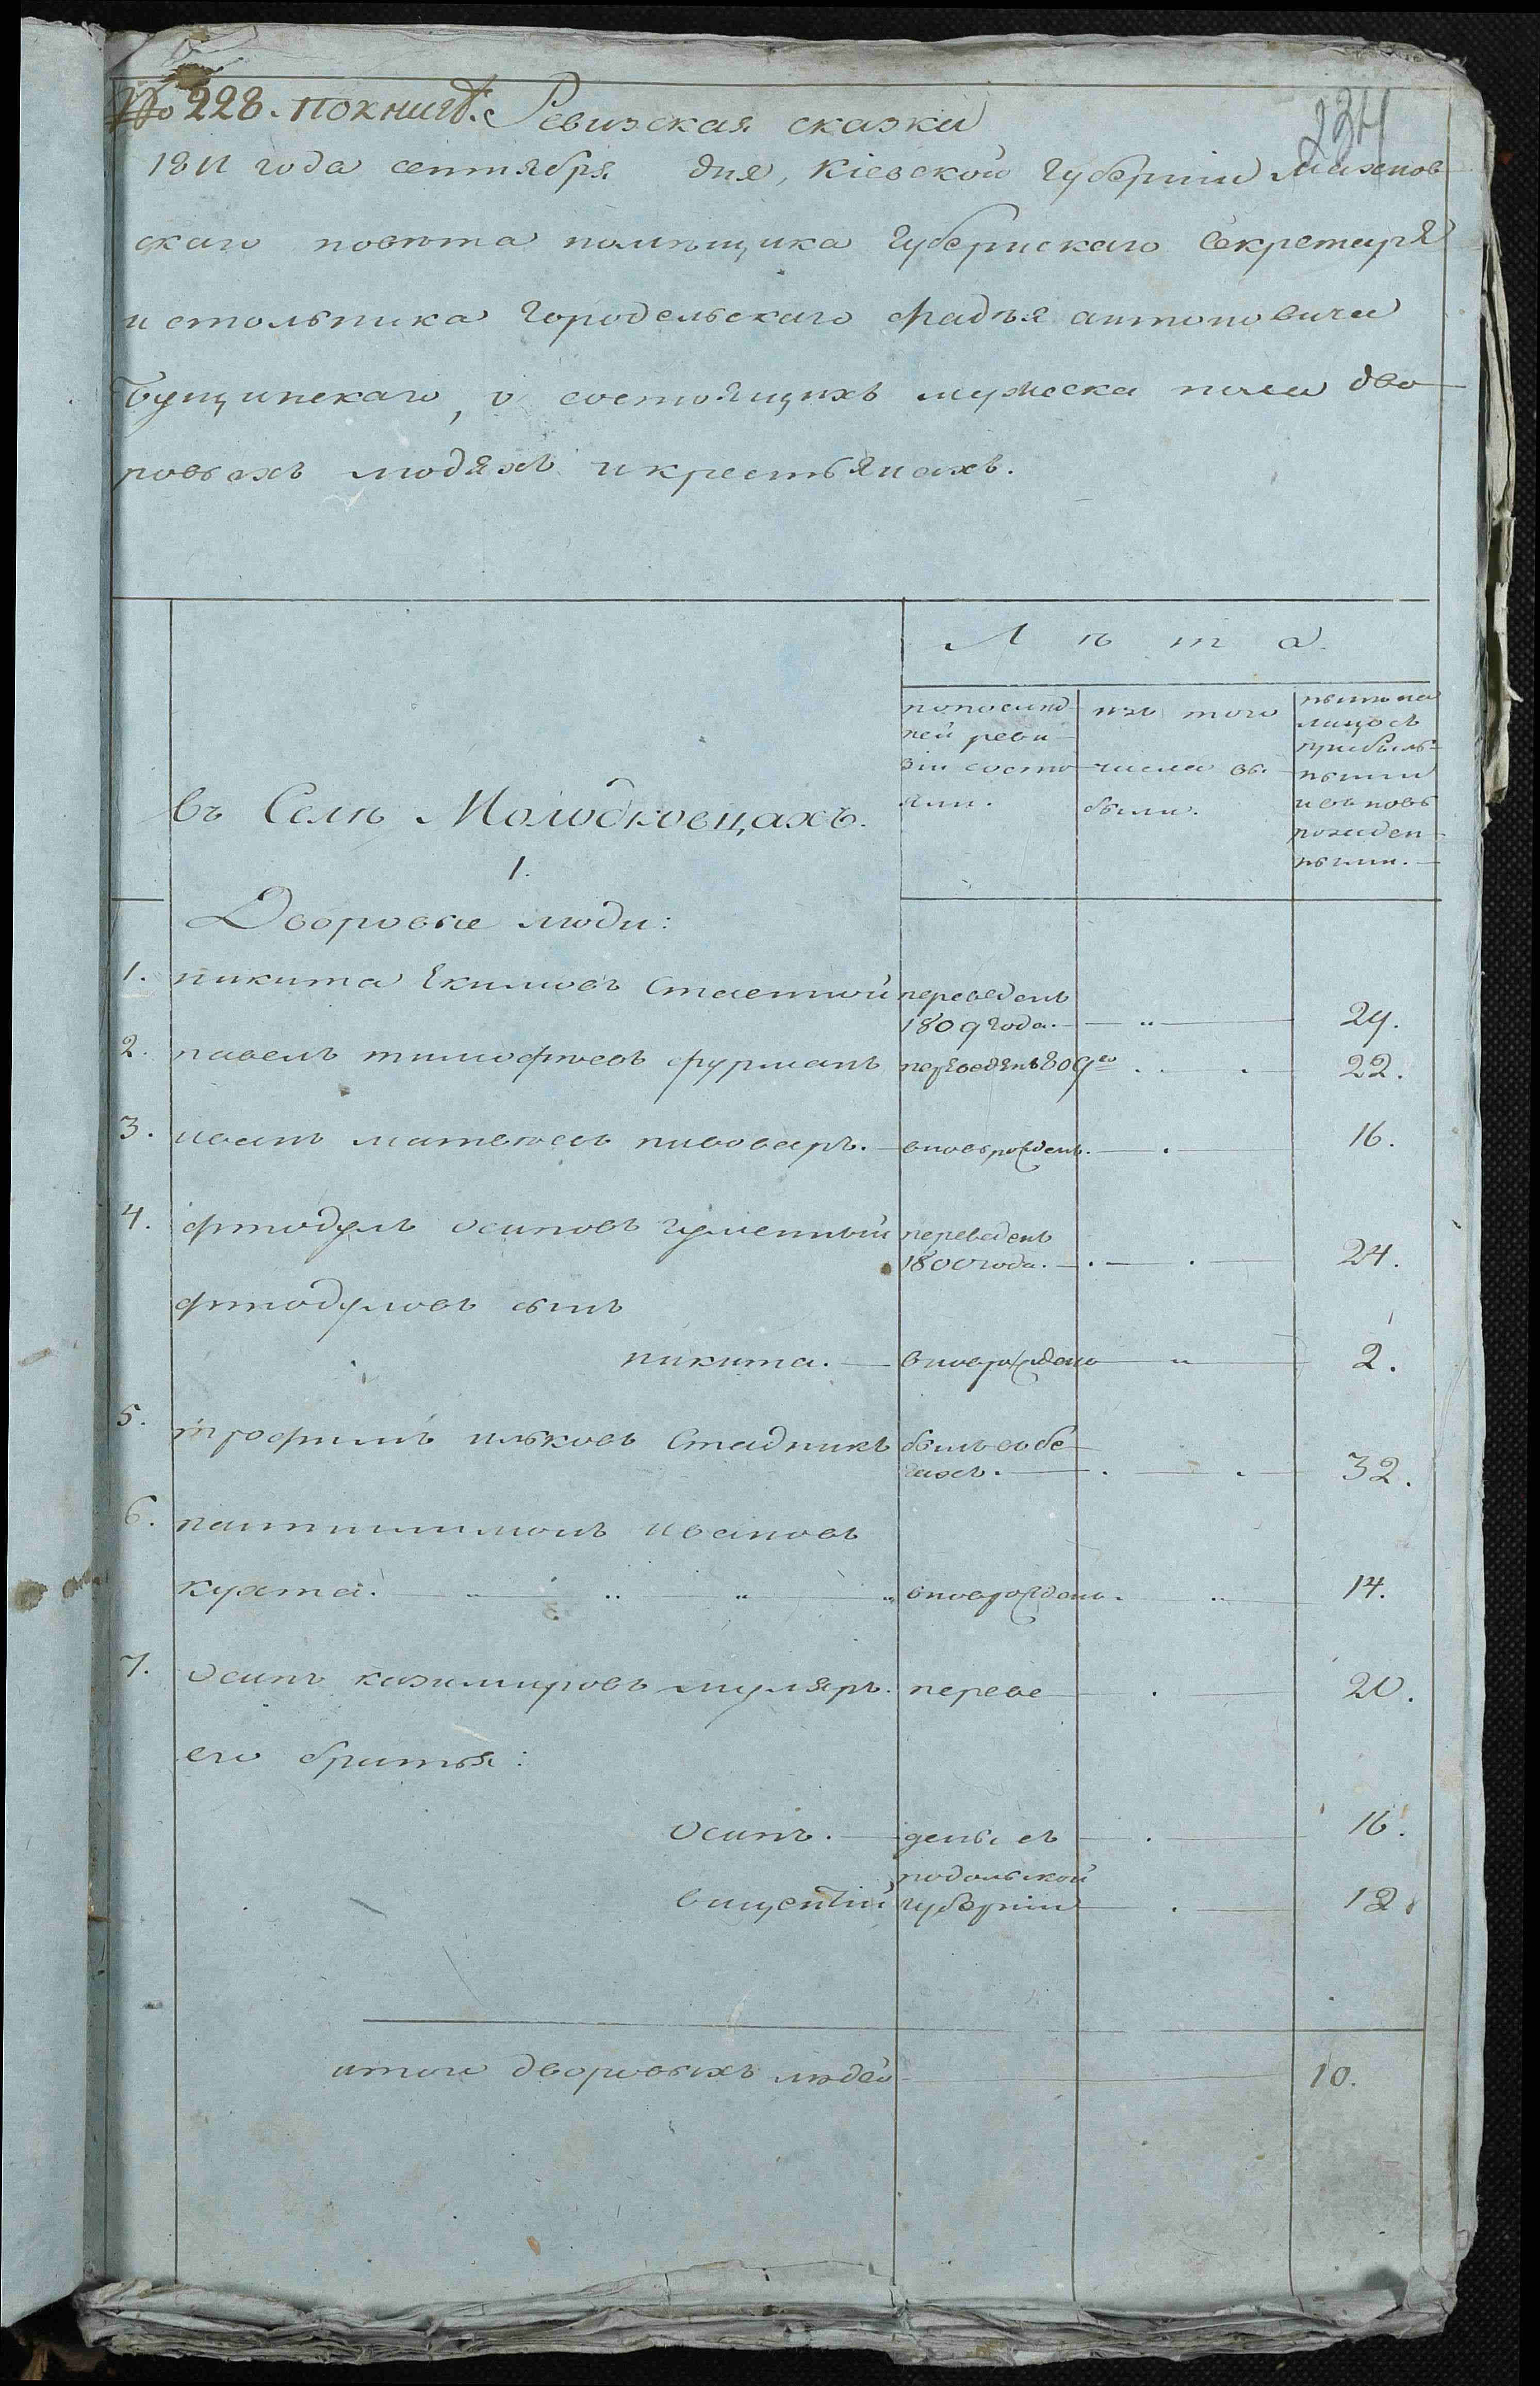 № 228. по книгѣ. Ревизская сказка
234
1811 года сентября дня, Кіевской губерніи Махнов
скаго повѣта помѣщика губернскаго Секретаря
и стольника городельскаго фадѣя антоновича
Бущинскаго, о состоящихъ мужеска пола дво
ровыхъ людяхъ и крестьянахъ.
Лѣта.
въ Селѣ Молодковцахъ.
1.
Дворовые люди:
попослѣд
ней реви
зіи состо
яли.
изъ того
числа вы
были.
нынѣ на
лицо съ
прибыль
ными
и вновь
рожден
ными.
1. никита Екимовъ Стаенной переведенъ
1809 года. 29.
2. павелъ тимофѣевъ фурманъ переведенъ 809го 22.
3. иванъ матвѣевъ пивоваръ. вновьрожденъ. 16.
4. фтодулъ осиповъ гуменный переведенъ
1800 года. 24.
фтодуловъ сынъ
никита. вновьрожденъ 2.
5. трофимъ ильковъ Стадникъ былъ въ бе
гахъ. 32.
6. пантилимонъ ивановъ
кухта. вновьрожденъ. 14.
7. осипъ казимировъ муляръ. переве 20.
его братья:
осипъ. денъ съ 16.
подольской
вицентій губерніи 12.
итого дворовыхъ людей 10.